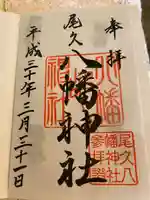 奉拝
尾久
八幡神社
平成三十年三月三十一日
八幡
神社
尾久八
幡神社
参拝証